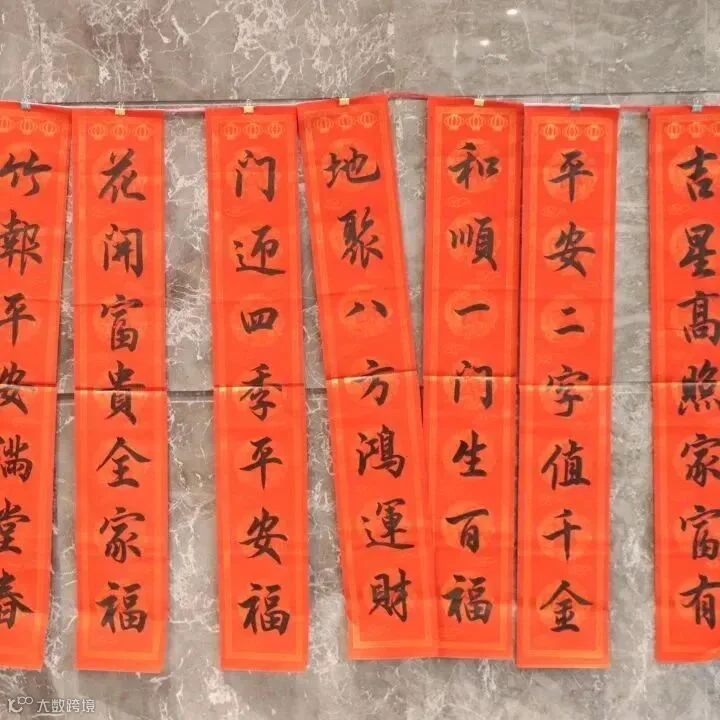 吉星高照家富有
平安二字值千金
和順一门生百福
地聚八方鴻運財
门迎四季平安福
花開富貴全家福
竹報平安满堂春
大数跨境